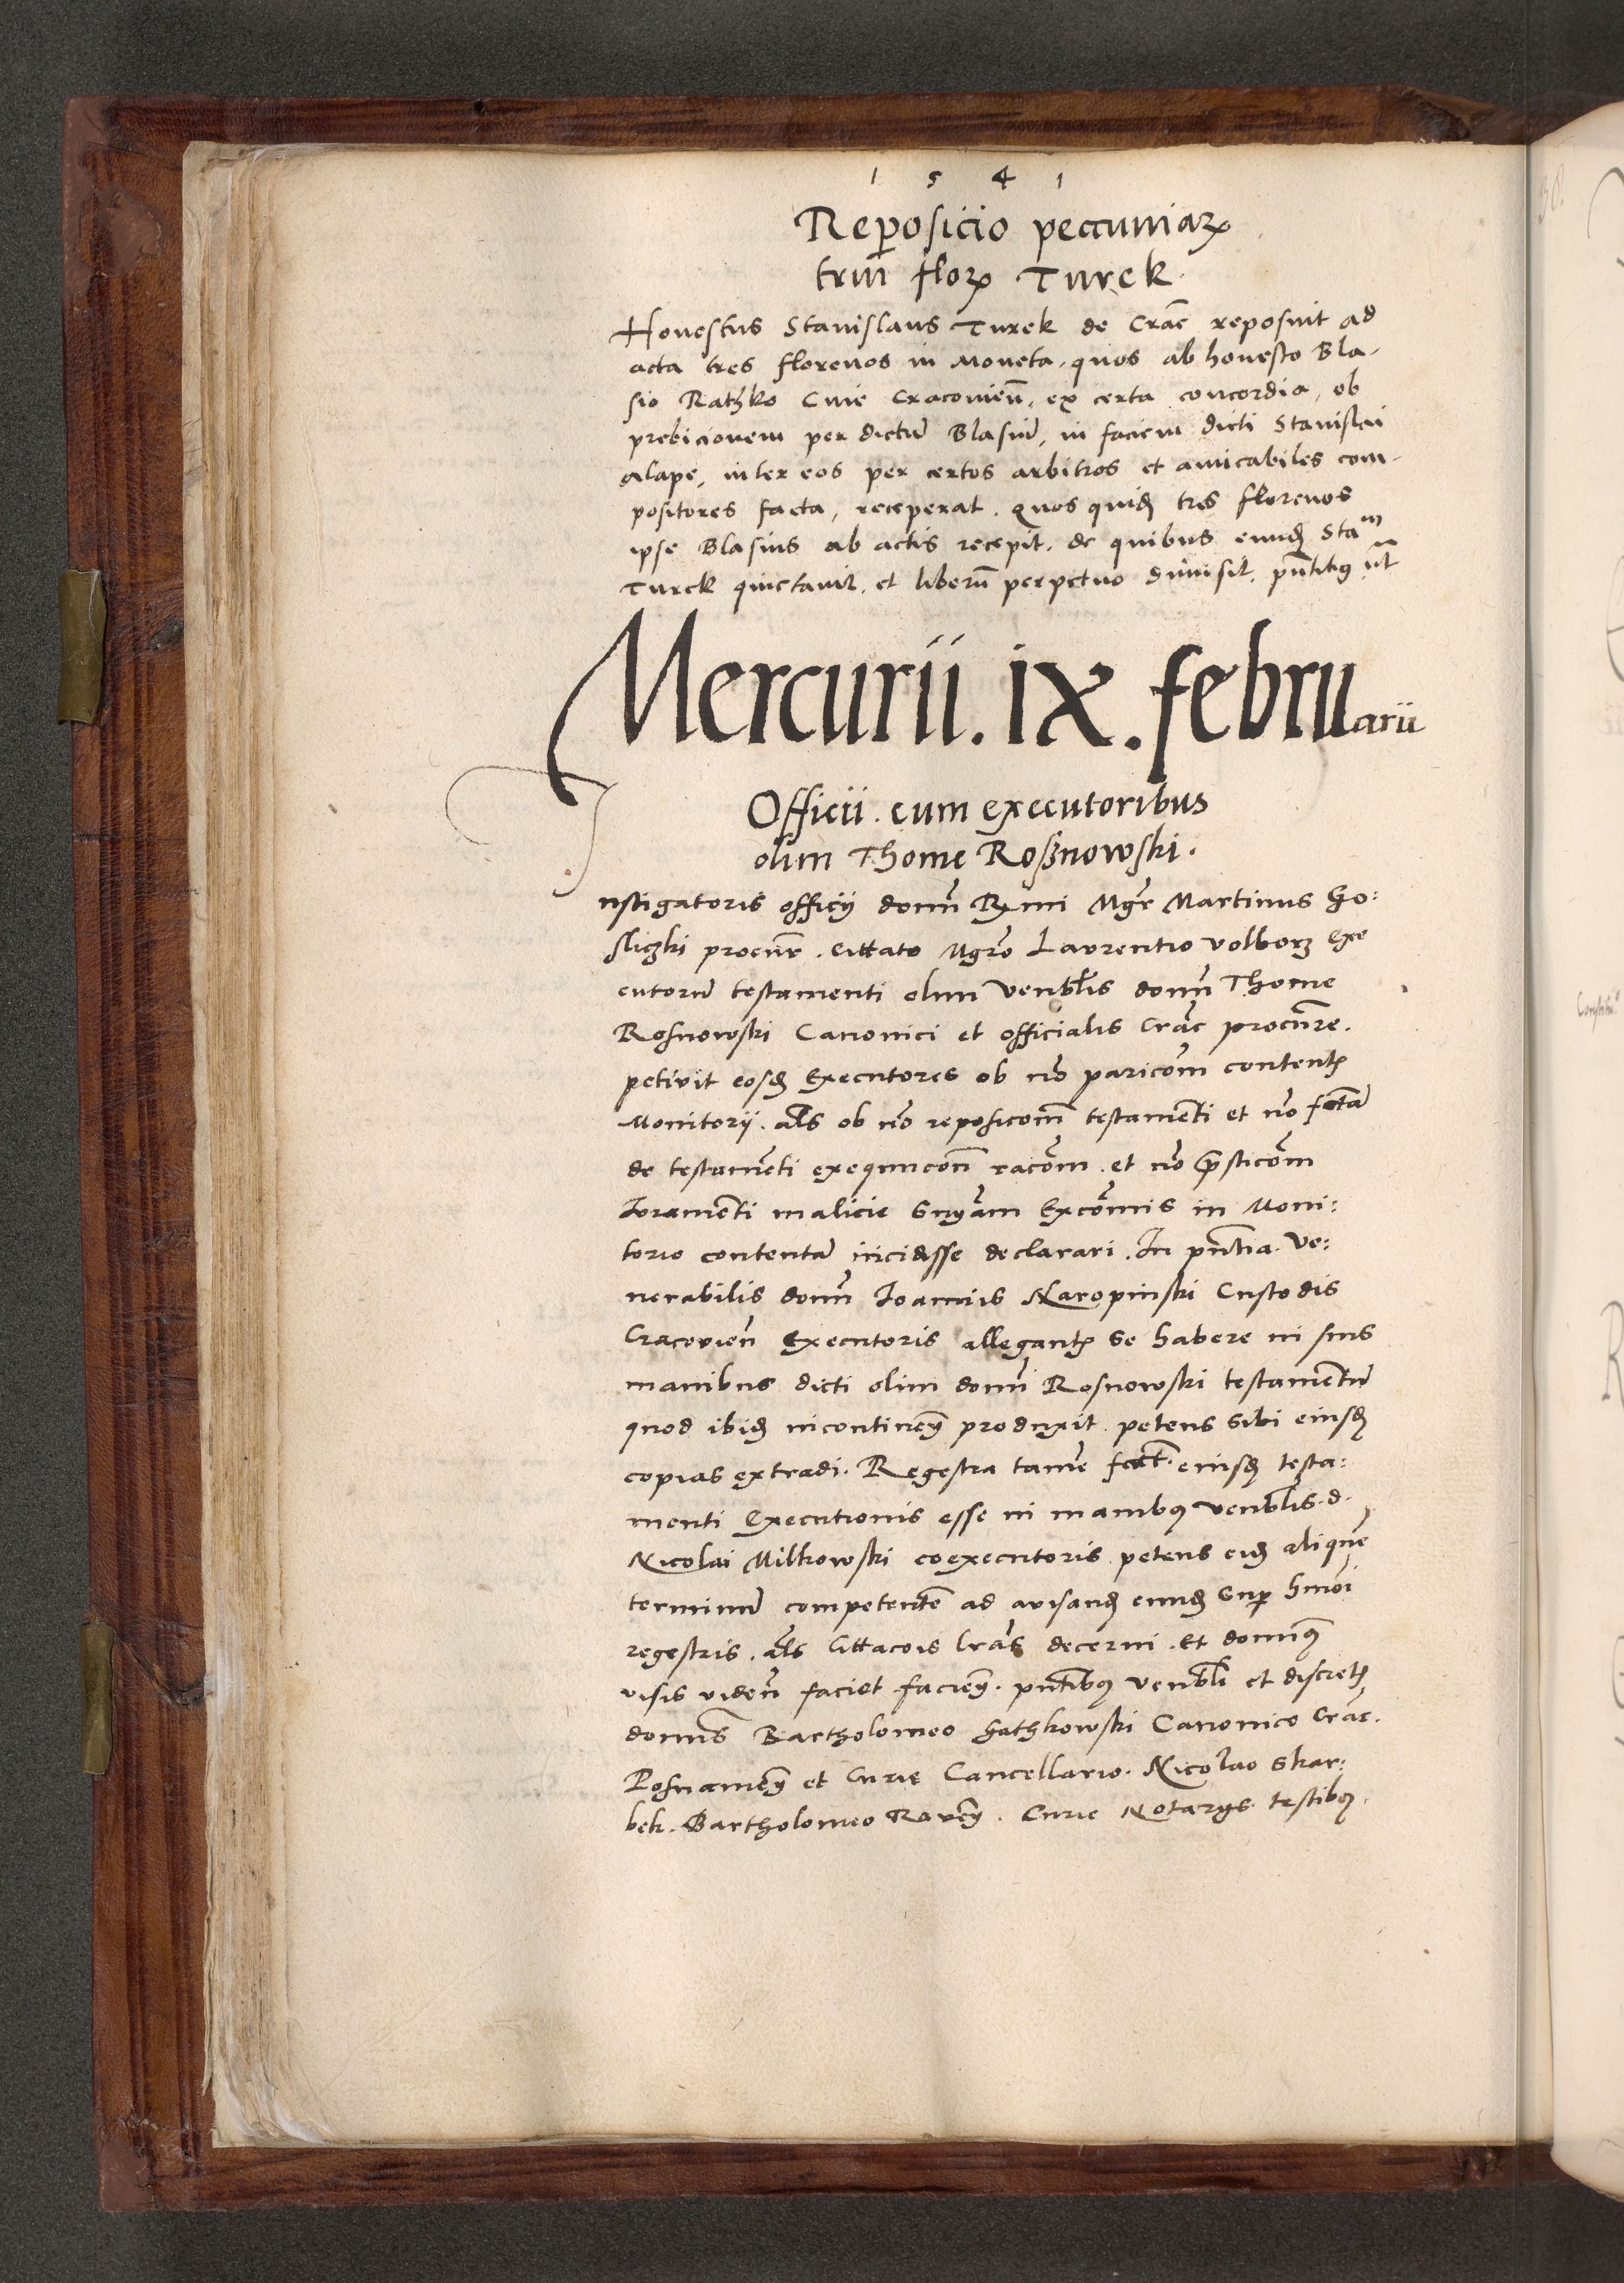 1 5 4 1
Reposicio peccuniaꝝ
triū floꝝ Turek
Honestus Stanislaus Turek de Crac̄ reposuit ad
acta tres florenos in moneta, quos ab honesto Bla-
sio Rathko Cive Cracovieñ, ex certa concordia, ob
prebicionem per dictū Blasiū, in faciem dicti Stanislai
alape, inter eos per certos arbitros et amicabiles com-
positores facta, receperat. Quos quidȩ tres florenos
ipse Blasius ab actis recepit. de quibus eundȩ Staᵐ
Turek quictavit, et liberū perpetuo dimisit, pn̄tibꝰ ut̄
Mercurii. ix. februarii
Officii. cum executoribus
olim Thome Roßnowski.
Instigatoris officÿ domī Rmi Mgr̄ Martinus Go:
sliczki procur̄. Cittato Mgr̄o Laurentio Volborz Exe
cutorū testamenti olim Venblis domī Thome
Rosnowski Canonici et officialis Crac̄ procur̄e.
petivit eosdȩ Executores ob nō paricōm contentꝝ
Monitorÿ. al̄s ob nō reposicōm testamēti et nō factā
de testamēti exequucōn̄ racōm. et nō p̄sticōm
Juramēti malicie Sn̄iam Excōmis in Moni:
torio contentā incidisse declarari. In pn̄tia. Ve:
nerabilis domī Joannis Naropinski Custodis
Cracovieñ Executoris allegantꝭ se habere in suis
manibus dicti olim domī Rosnowski testamētū
quod ibidȩ incontineñ produxit. petens sibi eiusdȩ
copias extradi. Regestra tamē fact̄. eiusdȩ testa:
menti Executionis esse in manibꝰ venblis. d.
Nicolai Milkowski coexecutoris petens eidȩ aliquē
terminū competentē ad avisandȩ eundȩ sup̄ hmōi
regestris. al̄s Cittacōis lrā̄s decerni. Et dominꝰ
visis videñ faciet facieñ. pn̄tibꝰ venbli et discretꝭ
domīs Bartholomeo Gathkowski Canonico Crac̄.
Posnanieñ et Curie Cancellario. Nicolao Skar:
bek. Bartholomeo Raveñ. Curie Notarÿs testibꝰ.